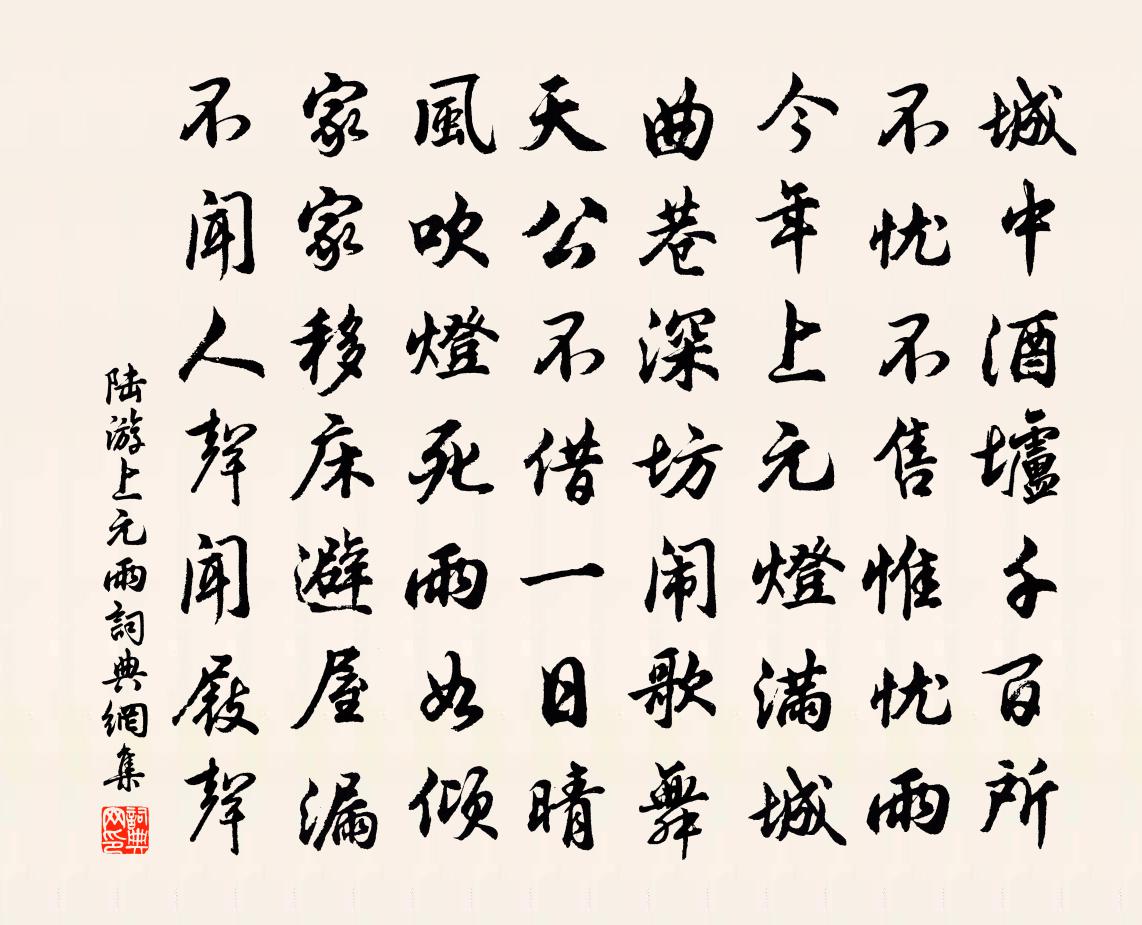 城中酒壚千百所
不忧不售惟忧雨
今年上元燈滿城
曲巷深坊闹歌舞
天公不借一日晴
風吹燈死雨如倾
家家移床避屋漏
不闻人聲闻屐聲
陆游上元雨詞典網集
詞典网印